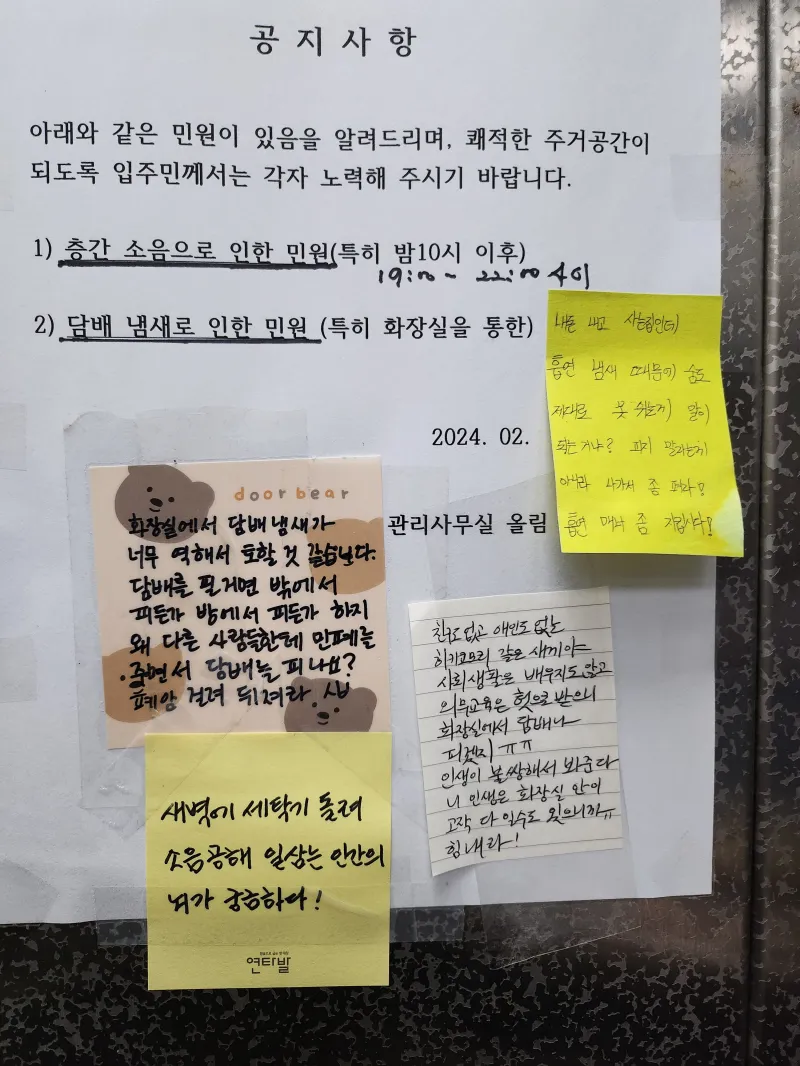 공 지 사 항
아래와 같은 민원이 있음을 알려드리며, 쾌적한 주거공간이
되도록 입주민께서는 각자 노력해 주시기 바랍니다.
1) 층간 소음으로 인한 민원(특히 밤10시 이후)
19:00 ~ 22:00 사이
2) 담배 냄새로 인한 민원 (특히 화장실을 통한)
2024. 02.
관리사무실 올림
내돈 내고 사는집인데
흡연 냄새 때문에 숨도
제대로 못 쉬는게 말이
되는거냐? 피지 말라는게
아니라 나가서 좀 펴라!
흡연 매너 좀 지킵시다!
door bear
화장실에서 담배냄새가
너무 역해서 토할 것 같습니다.
담배를 필거면 밖에서
피든가 방에서 피든가 하지
왜 다른 사람들한테 민폐를
주면서 담배를 피나요?
폐암 걸려 뒤져라 ㅅㅂ
친구없고 애인도 없는
히키코모리 같은 새끼야
사회생활은 배우지도 않고
의무교육은 헛으로 받으니
화장실에서 담배나
피겠지 ㅠㅠ
인생이 불쌍해서 봐준다
니 인생은 화장실 안이
고작 다 일수도 있으니까ㅠ
힘내라!
새벽에 세탁기 돌려
소음공해 일삼는 인간의
뇌가 궁금하다!
연타발